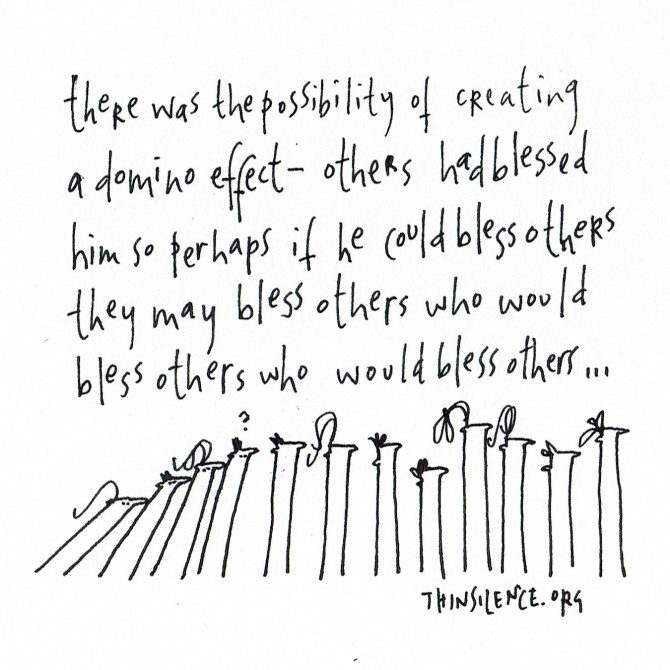 there was the possibility of creating
a domino effect- others had blessed
him so perhaps if he could bless others
they may bless others who would
bless others who would bless others...
?
THINSILENCE.ORG